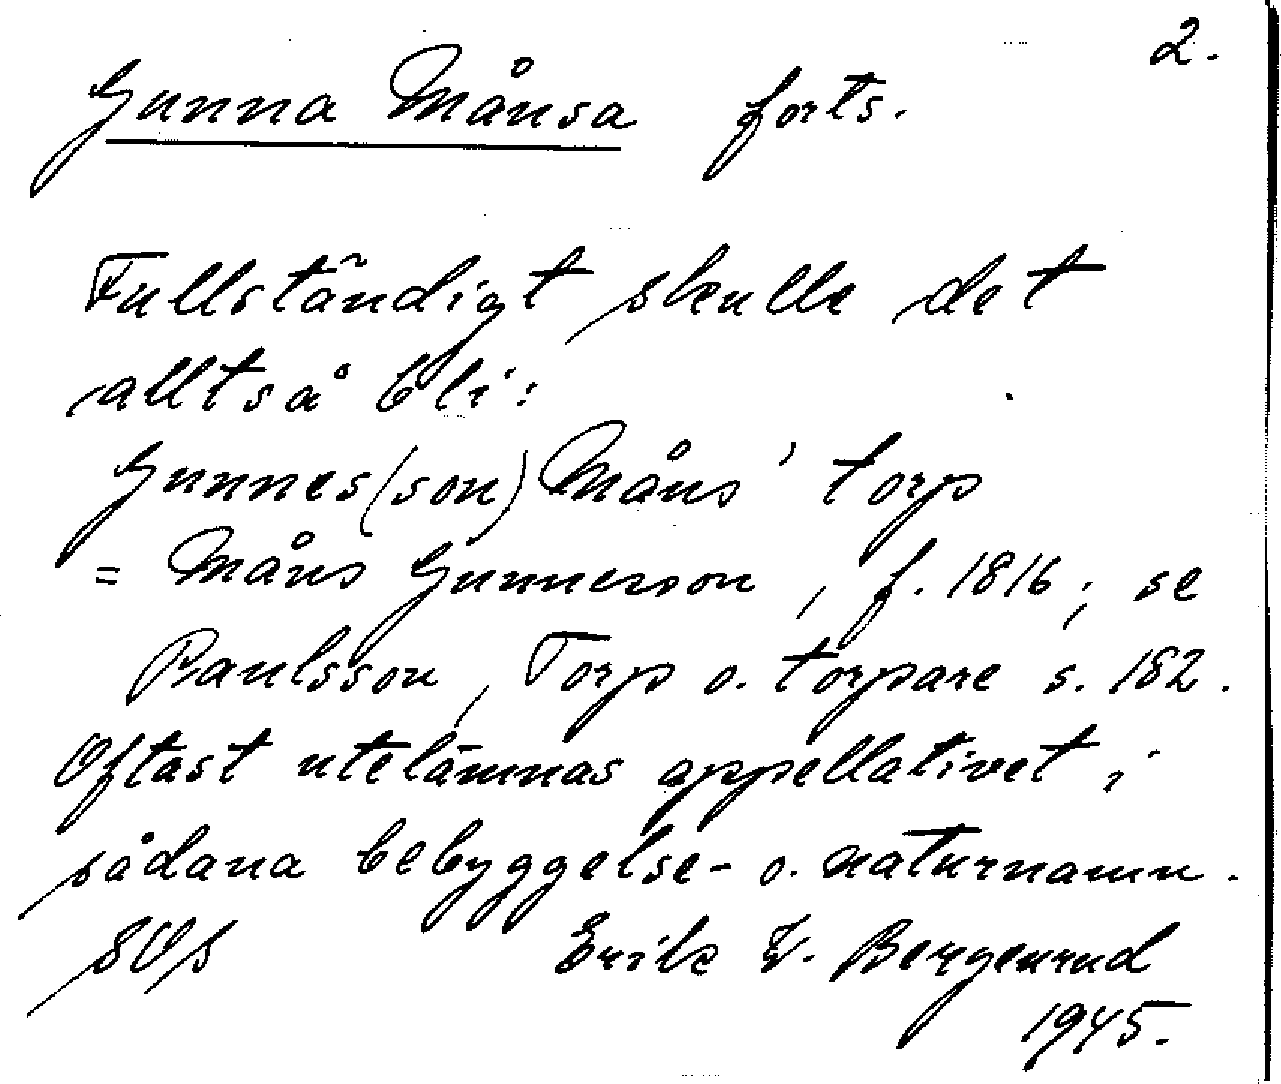 2.
Gunna Månsa forts.
Fullständigt skulle det
alltså bli:
Gunnes(son) Måns' torp
= Måns Gunnesson, f. 1816; se
Paulsson, Torp o. torpare s. 182.
Oftast utelämnas appellativet i
sådana bebyggelse- o. naturnamn.
SOS Erik W. Bergenrud
1945.